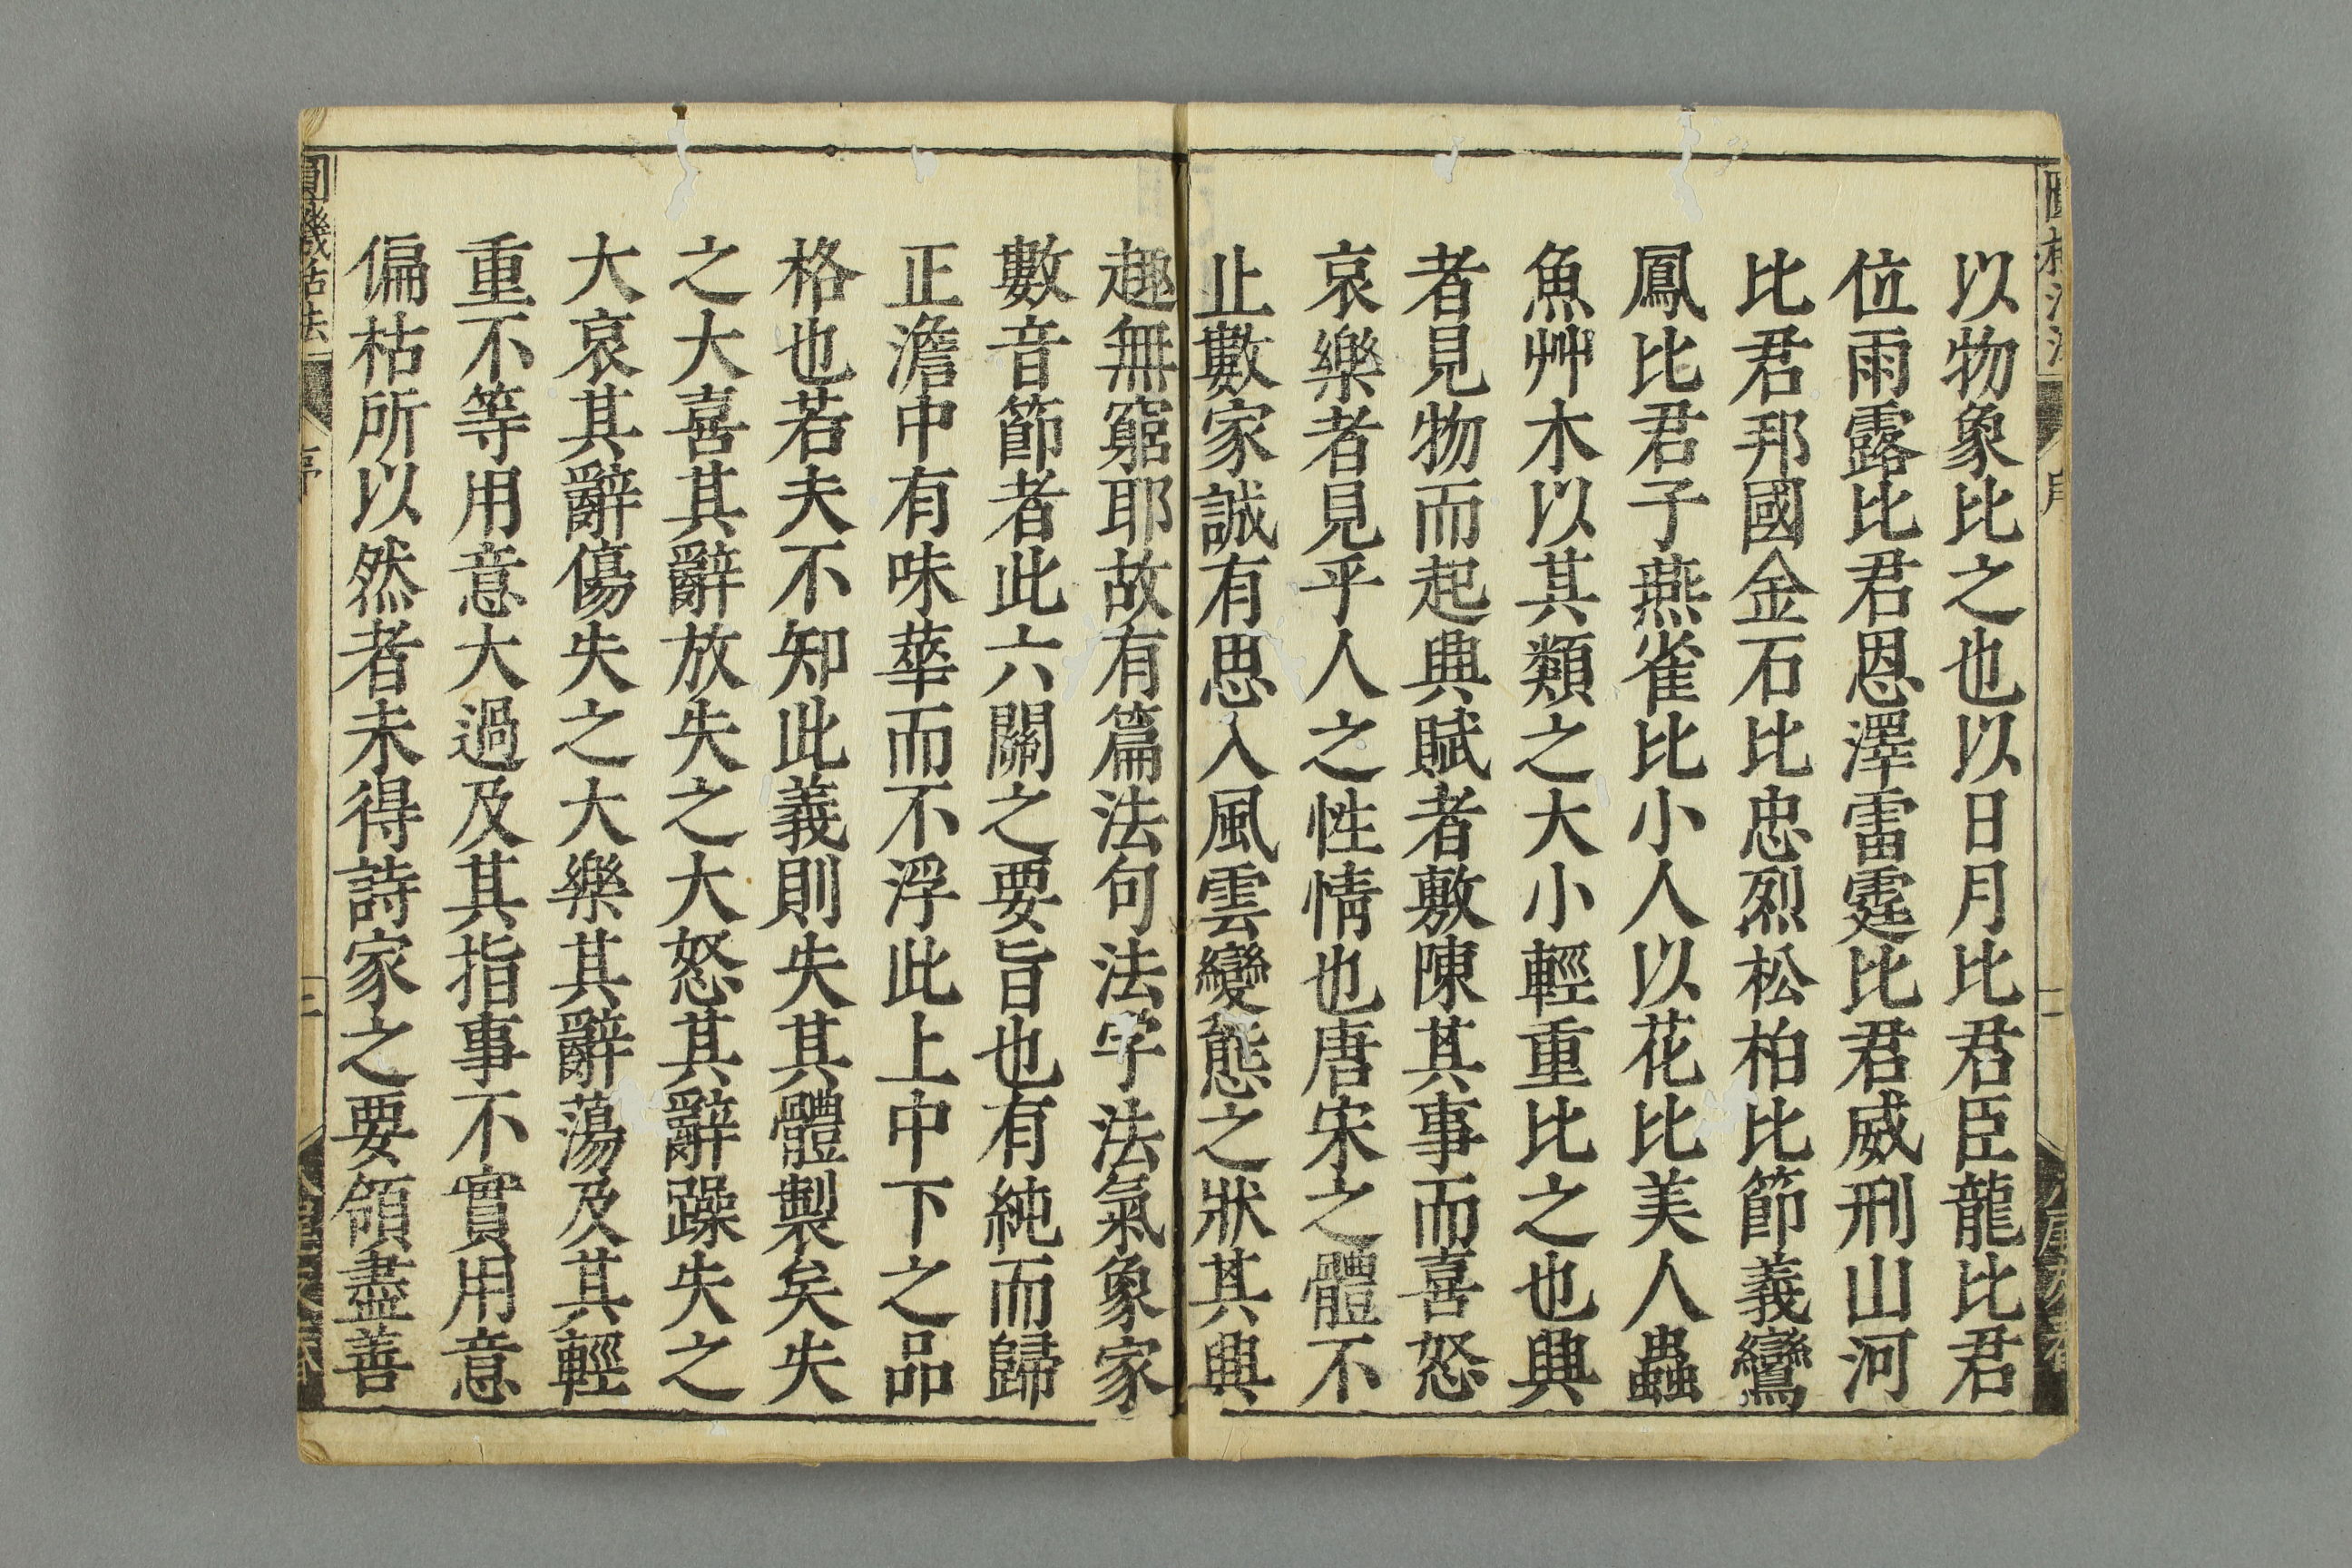 以物象比之也以日月比君臣龍比君
位雨露比君恩澤雷霆比君威刑山河
比君邦國金石比忠烈松柏比節義鸞
鳳比君子燕雀比小人以花比美人蟲
魚艸木以其類之大小輕重比之也興
者見物而起興賦者敷陳其事而喜怒
哀樂者見乎人之性情也唐宋之體不
止數家誠有思入風雲變態之狀其興
趣無窮耶故有篇法句法字法氣象家
數音節者此六關之要旨也有純而歸
正澹中有味華而不浮此上中下之品
格也若夫不知此義則失其體製矣失
之大喜其辭放失之大怒其辭躁失之
大哀其辭傷失之大樂其辭蕩及其輕
重不等用意大過及其指事不實用意
偏枯所以然者未得詩家之要領盡善
圓機活法
序
二